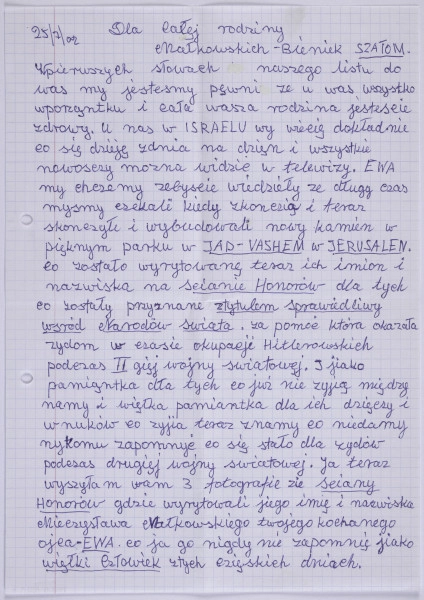 25/7/02 Dla całej rodziny
Małkowskich-Bieniek SZAŁOM.
Wpierwszych słowach naszego listu do
was my jestesmy pewni ze u was wszystko
wporząntku i cała wasza rodzina jesteście
zdrowy. U nas w ISRAELU wy wiecię dokładnie
co się dzięję zdnia na dzięń i wszystkie
nowosczy mozna widzię w telewizy. EWA
my chczemy zebyscie wiedziěły ze długą czas
mysmy czekali kiedy zkonczią i teraz
skonczyłi i wybudowali nowy kamień w
pięknym parku w JAD-VASHEM w JERUSALEN.
co zostało wyrytowaną teraz ich imion i
nazwiska na scianie Honorów dla tych
co zostały przyznane ztytułem sprawiedliwy
wsród Narodów swiata, za pomóc która okazała
zydom w czasie okupacje Hitlerowskich
podczas II giej wojny swiatowej. I jiako
pamiąntka dla tych co już nie zyją między
namy i więlka pamiantka dla ich dzięcsy i
wnuków co zyjia teraz znamy co niedamy
nykomu zapomnyć co się stało dla zydów
podczas drugiej wojny swiatowej. Ja teraz
wyszyłam wam 3 fotografie zie sciany
Honorów gdzie wyrytowali jego imię i nazwiska
Mieczysława Małkowskiego twojego kochanego
ojca-EWA. co ja go nigdy nie zapomnię jiako
więłki Człowiek złych czięskich dniach.